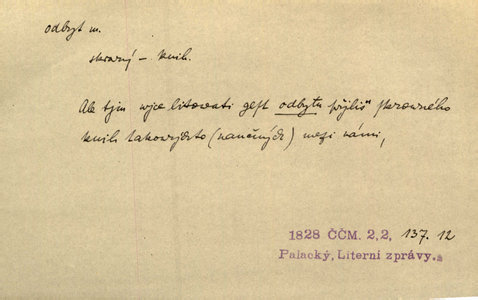 odbyt m.
skrovný – knih.
Ale tjm wjce litowati gest odbytu přjliš skrowného
knih takowýchto (naučných) mezi námi,
1828 ČČM. 2,2, 137.12
Palacký, Literní zprávy.